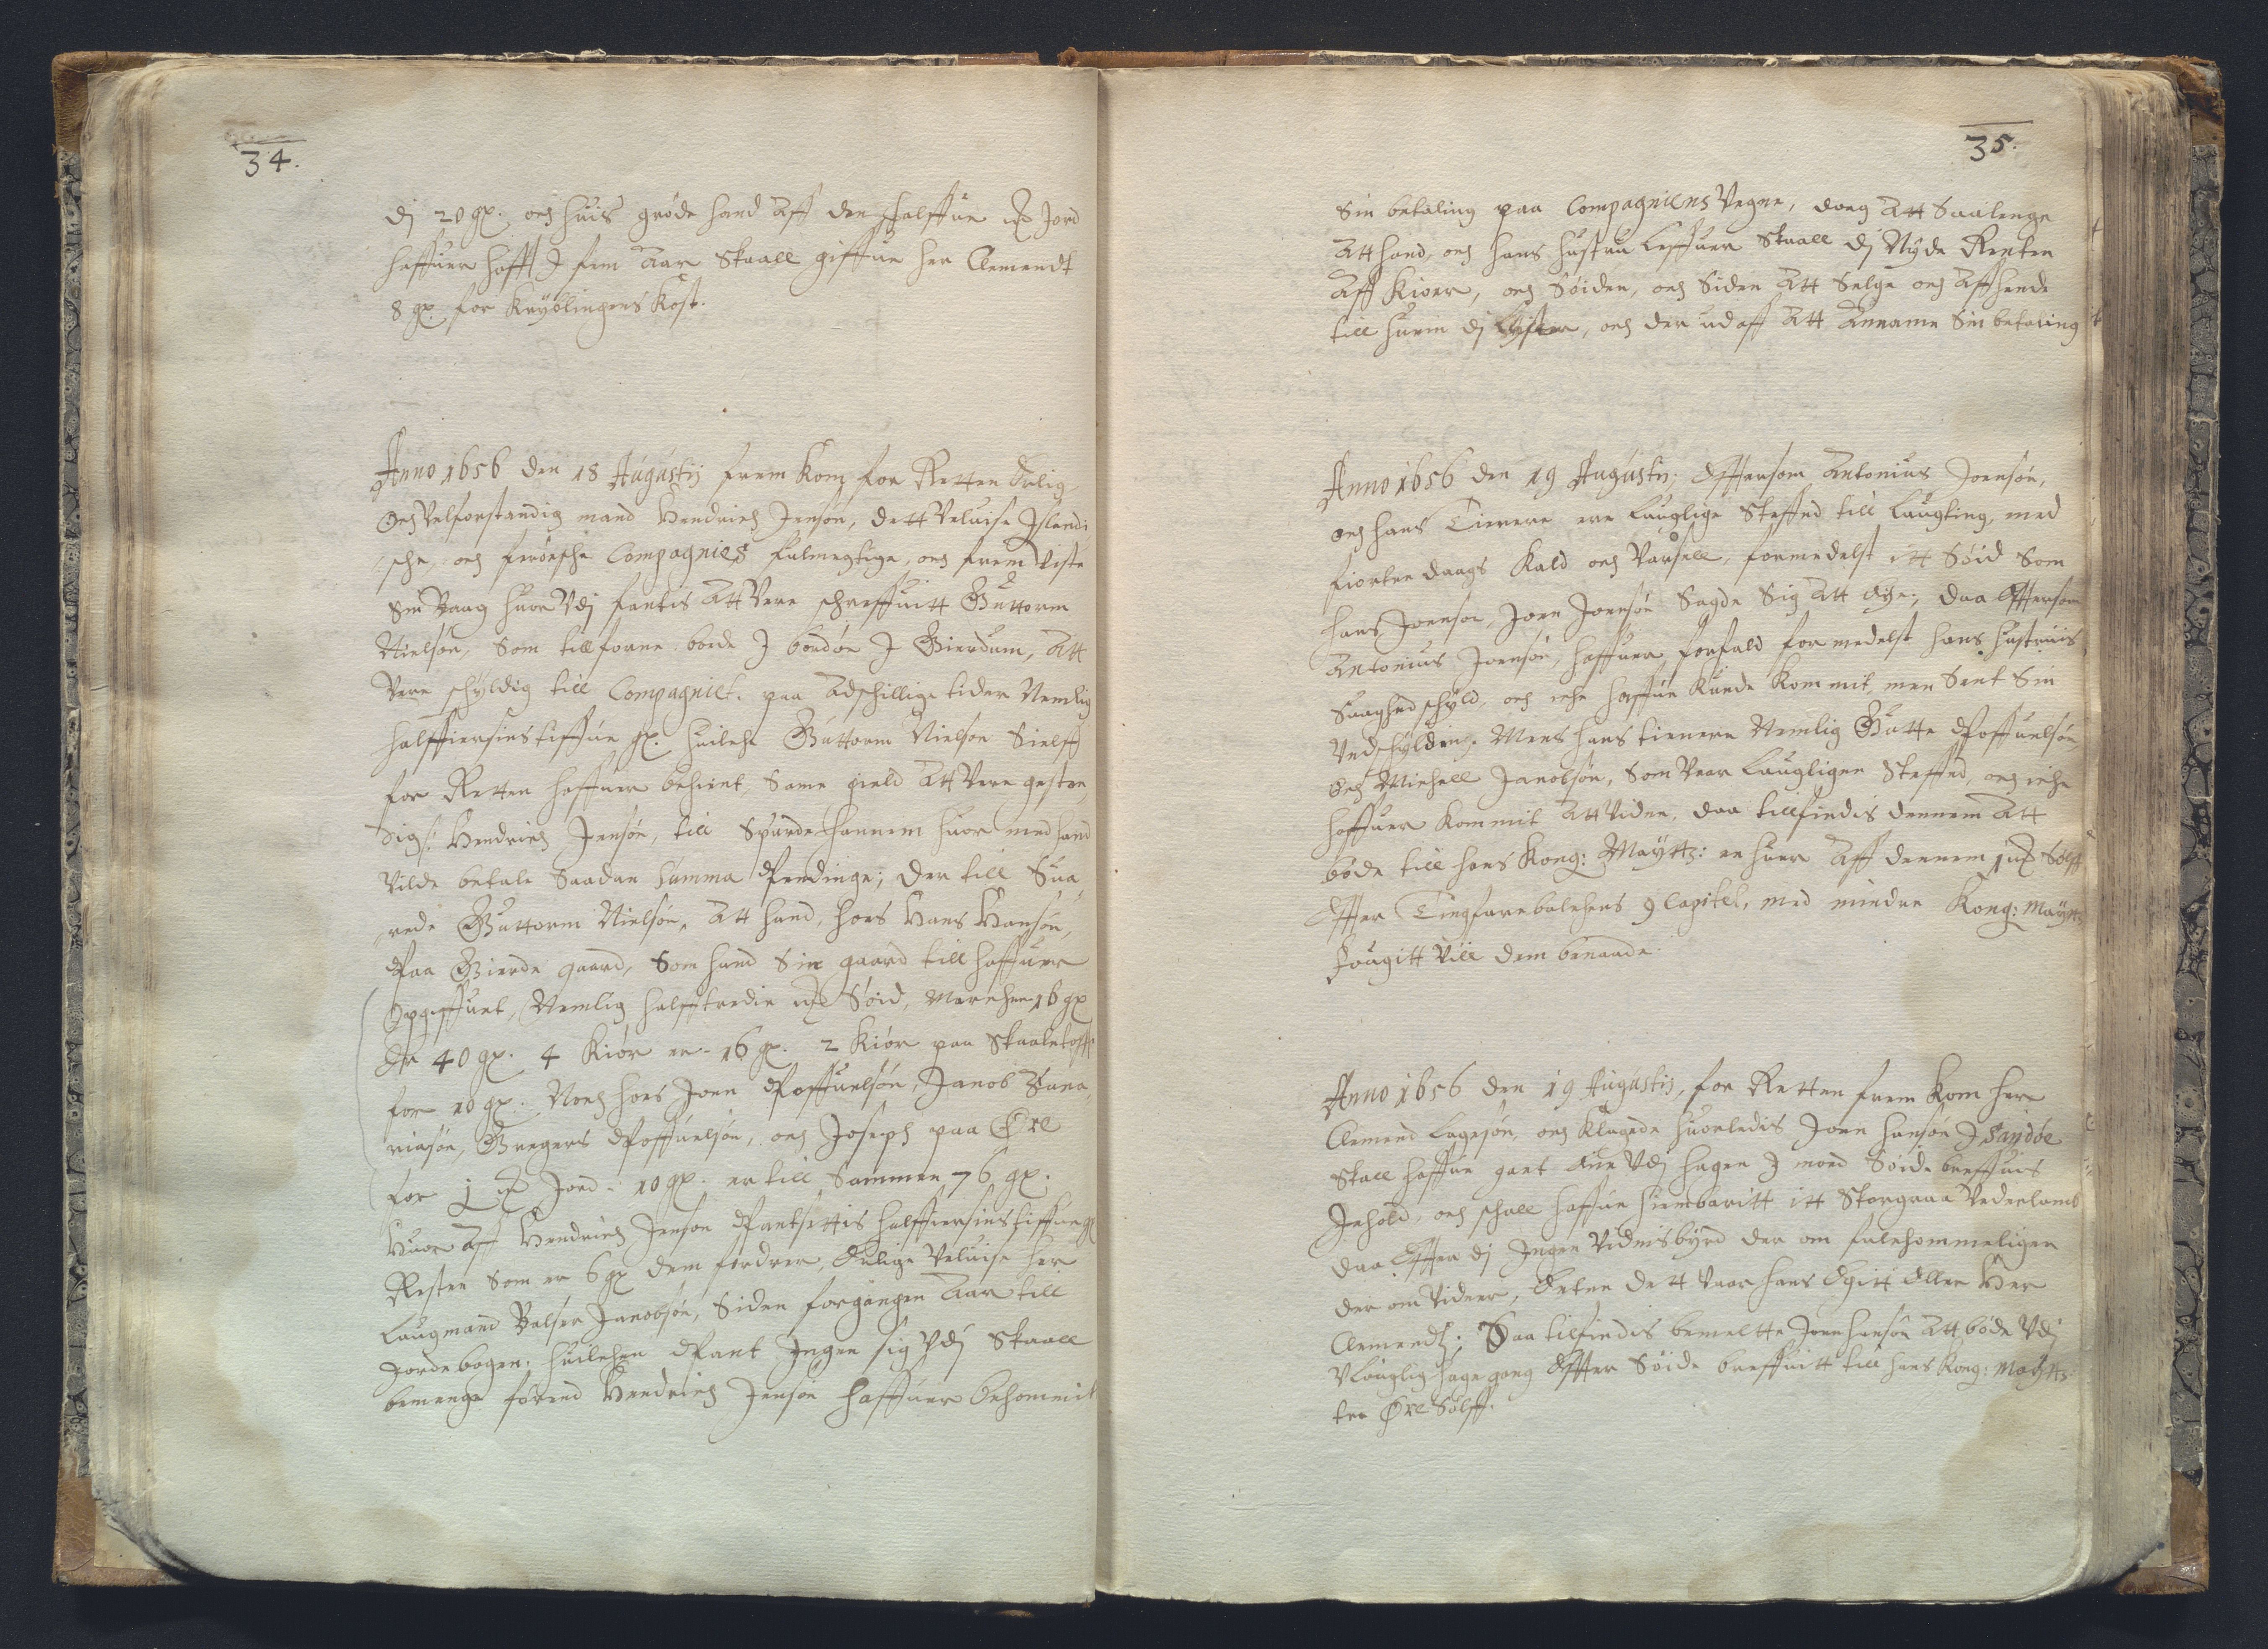 34.
dj 20 gx. och huis grøde hand Aff den halffue mk Jord
haffuer hafft J fem Aar Skaall giffue her Clemendt
8 gx. for Krÿblingens Kost.
Anno 1656 den 18 Augustij frem Kom for Retten Erlig
Och Velforstandig mand Hendrich Jensøn, dett Veluise Jslendi
sche, och ferøesche Compagnies fulmegtige, och frem Viste
Sin Vaag huor Vdj fantis Att Vere schreffuitt Guttorm
Nielsøn, Som tillforne boede J bordøe J Gierdum, Att
Vere schyldig till Compagniet. paa Adschillige tider Nemlig
halffiersins tiffue gx. huilche Guttorm Nielsøn Sielff
for Retten haffuer bekient, Same gield Att Vere gestendig:
Hendrich Jensøn, till Spurde hannem huor med hand
Vilde betale Saadan Summa Pendinge; der till Sua
rede Guttorm Nielsøn, Att hand, hos Hans Hansøn,
Paa Gierde gaard, Som hand Sin gaard till haffuer
Opgiffuet, Nemlig halfftredie mk Søid, Merchen 16 gx
Er 40 gx. 4 Kiør er 16 gx. 2 Kiør paa Skaaletofft
for 10 gx. Noch hos Joen Poffuelsøn, Jacob Zaca
riasøn, Gregers Poffuelsøn, och Joseph paa Øre
for j mk Jord 10 gx. er till Sammen 76 gx.
Huor Aff Hendrich Jensøn Pantsettis halffiersins tiffue gx
Resten Som er 6 gx dem fordrer, Erlige Veluise her
Laugmand Balser Jacobsøn, Siden forgangen Aar till
Jordebogen. huilchen Pant Jngen sig Vdj Skaall
bemenge førend Hendrich Jensøn haffuer bekommit
35.
Sin betaling paa Compagniens Vegne, doeg Att Saalenge
Att hand, och hans hustru Leffuer Skaall dj Nyde Renten
Aff Kiøer, och Søiden, och Siden Att Selge och Affhende
till huem dj Lyster, och der ud aff Att Anname Sin betaling
Anno 1656 den 19 Augustij. Effersom Antonius Joensøn,
och hans Tienere ere Lauglige Steffned till Laugting, med
fiorten daags Kald och Varsell, formedelst itt Søid Som
hans Joensøn, Joen Joensøn Sagde Sig Att Eÿe; daa Effersom
Antonius Joensøn, haffuer forfald for medelst hans hustruis
Suaghed schyld, och iche haffue Kunde Kommit, men Sent Sin
Vndschylding. Mens hans tienere Nemlig Gutte Poffuelsøn
och Michell Jacobsøn, Som Vaar Laugligen Steffned, och iche
haffuer Kommit Att Vidne, daa tillfindis dennem Att
bøde till hans Kong: Maÿtt: en huer Aff dennem 1 mk Sølff
Effter Tingfarebolchens 9 Capitel, med mindre Kong: Maÿtt
Fougitt Vill dem benaade.
Anno 1656 den 19 Augustij, for Retten frem Kom her
Clemend Lagesøn, och Klagede huorledis Joen hansøn J Sandøe
Skall haffue gaet Ene Vdj hagen J mod Søide breffuis
Jnhold, och schall haffue hiembaritt itt Storgraa Vederlamb
daa Effter dj Jngen Vidnisbyrd der om fulchommeligen
der om Vidner, Enten dett Vaar hans Egitt Eller Her
Clemendts; Daa tilfindis bemeltte Joen hansøn Att bøde Vdj
Vlouglig hage gang Effter Søide breffuitt till hans Kong: Maÿtt:
tre Øre Sølff.